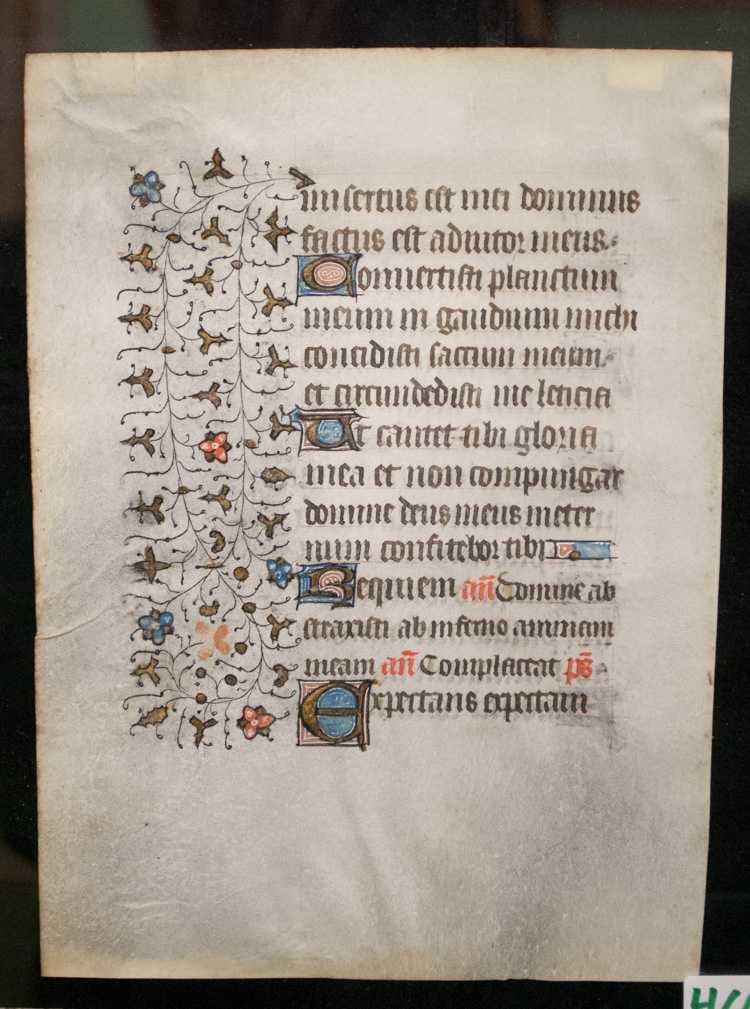 misertus est mei dominus
factus est adiutor meus.
Conuertisti planctum
meum in gaudium michi
concidisti saccum meum
et circundedisti me leticia
Ut cantet tibi gloria
mea et non compungar
domine deus meus in eter
num confitebor tibi
Requiem an̄ Domine ab
straxisti ab inferno animam
meam an̄ Complaceat ps̄
Expectans expectaui